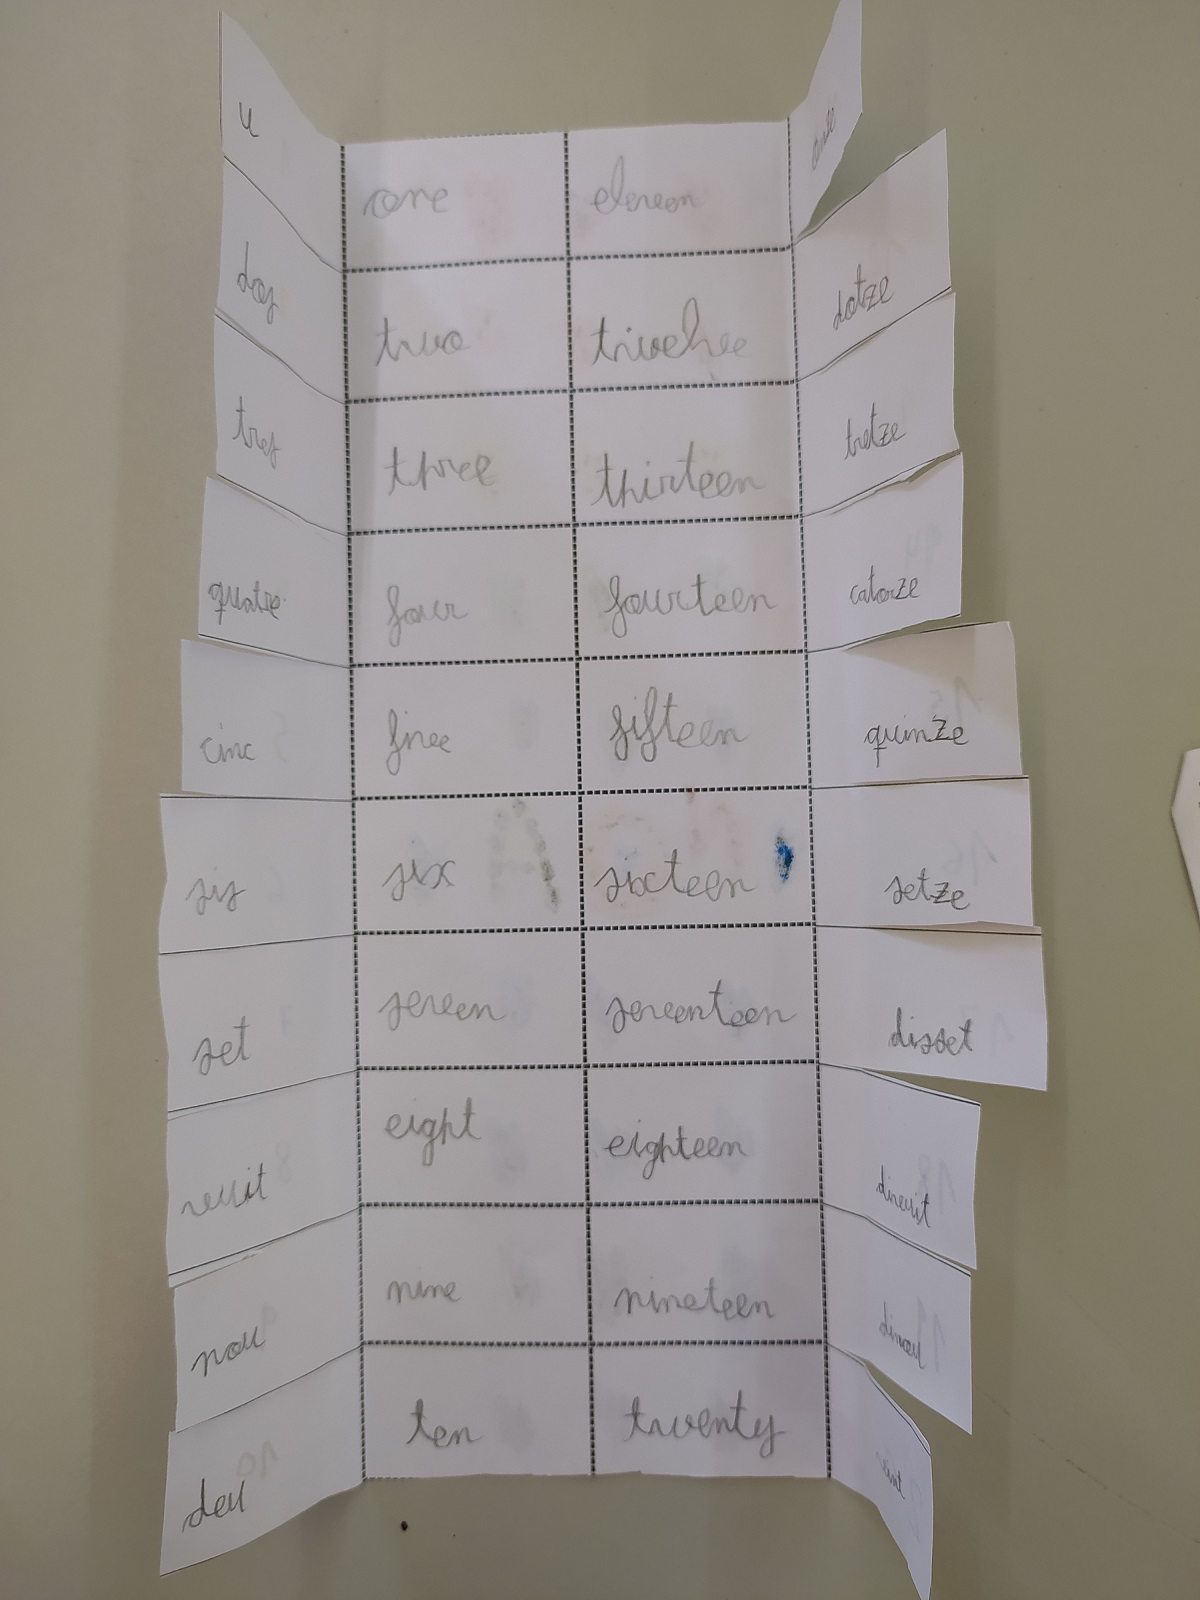 u one eleven onze
dos two twelve dotze
tres three thirteen tretze
quatre four fourteen catorze
cinc five fifteen quinze
sis six sixteen setze
set seven seventeen disset
vuit eight eighteen divuit
nou nine nineteen
deu ten twenty vint